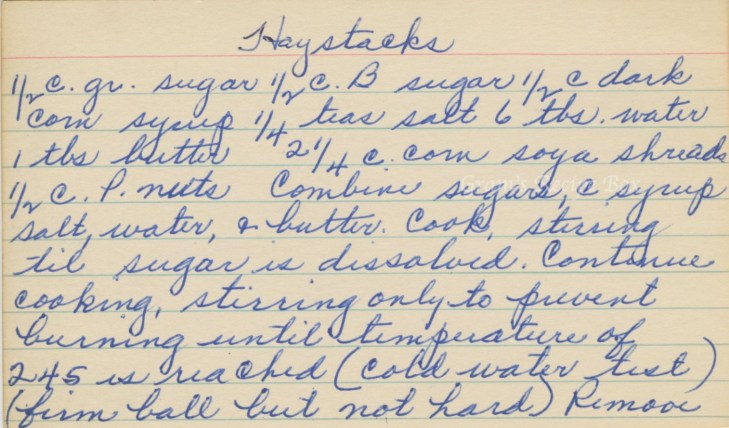 Haystacks
1/2 c. gr. sugar 1/2 c. B sugar 1/2 c dark
corn syrup 1/4 teas salt 6 tbs. water
1 tbs butter 2 1/4 c. corn soya shreads
1/2 c. P. nuts Combine sugars, c. syrup
salt, water, & butter. Cook, stirring
til sugar is dissolved. Continue
cooking, stirring only to prevent
burning until temperature of
245 is reached (cold water test)
(firm ball but not hard) Remove